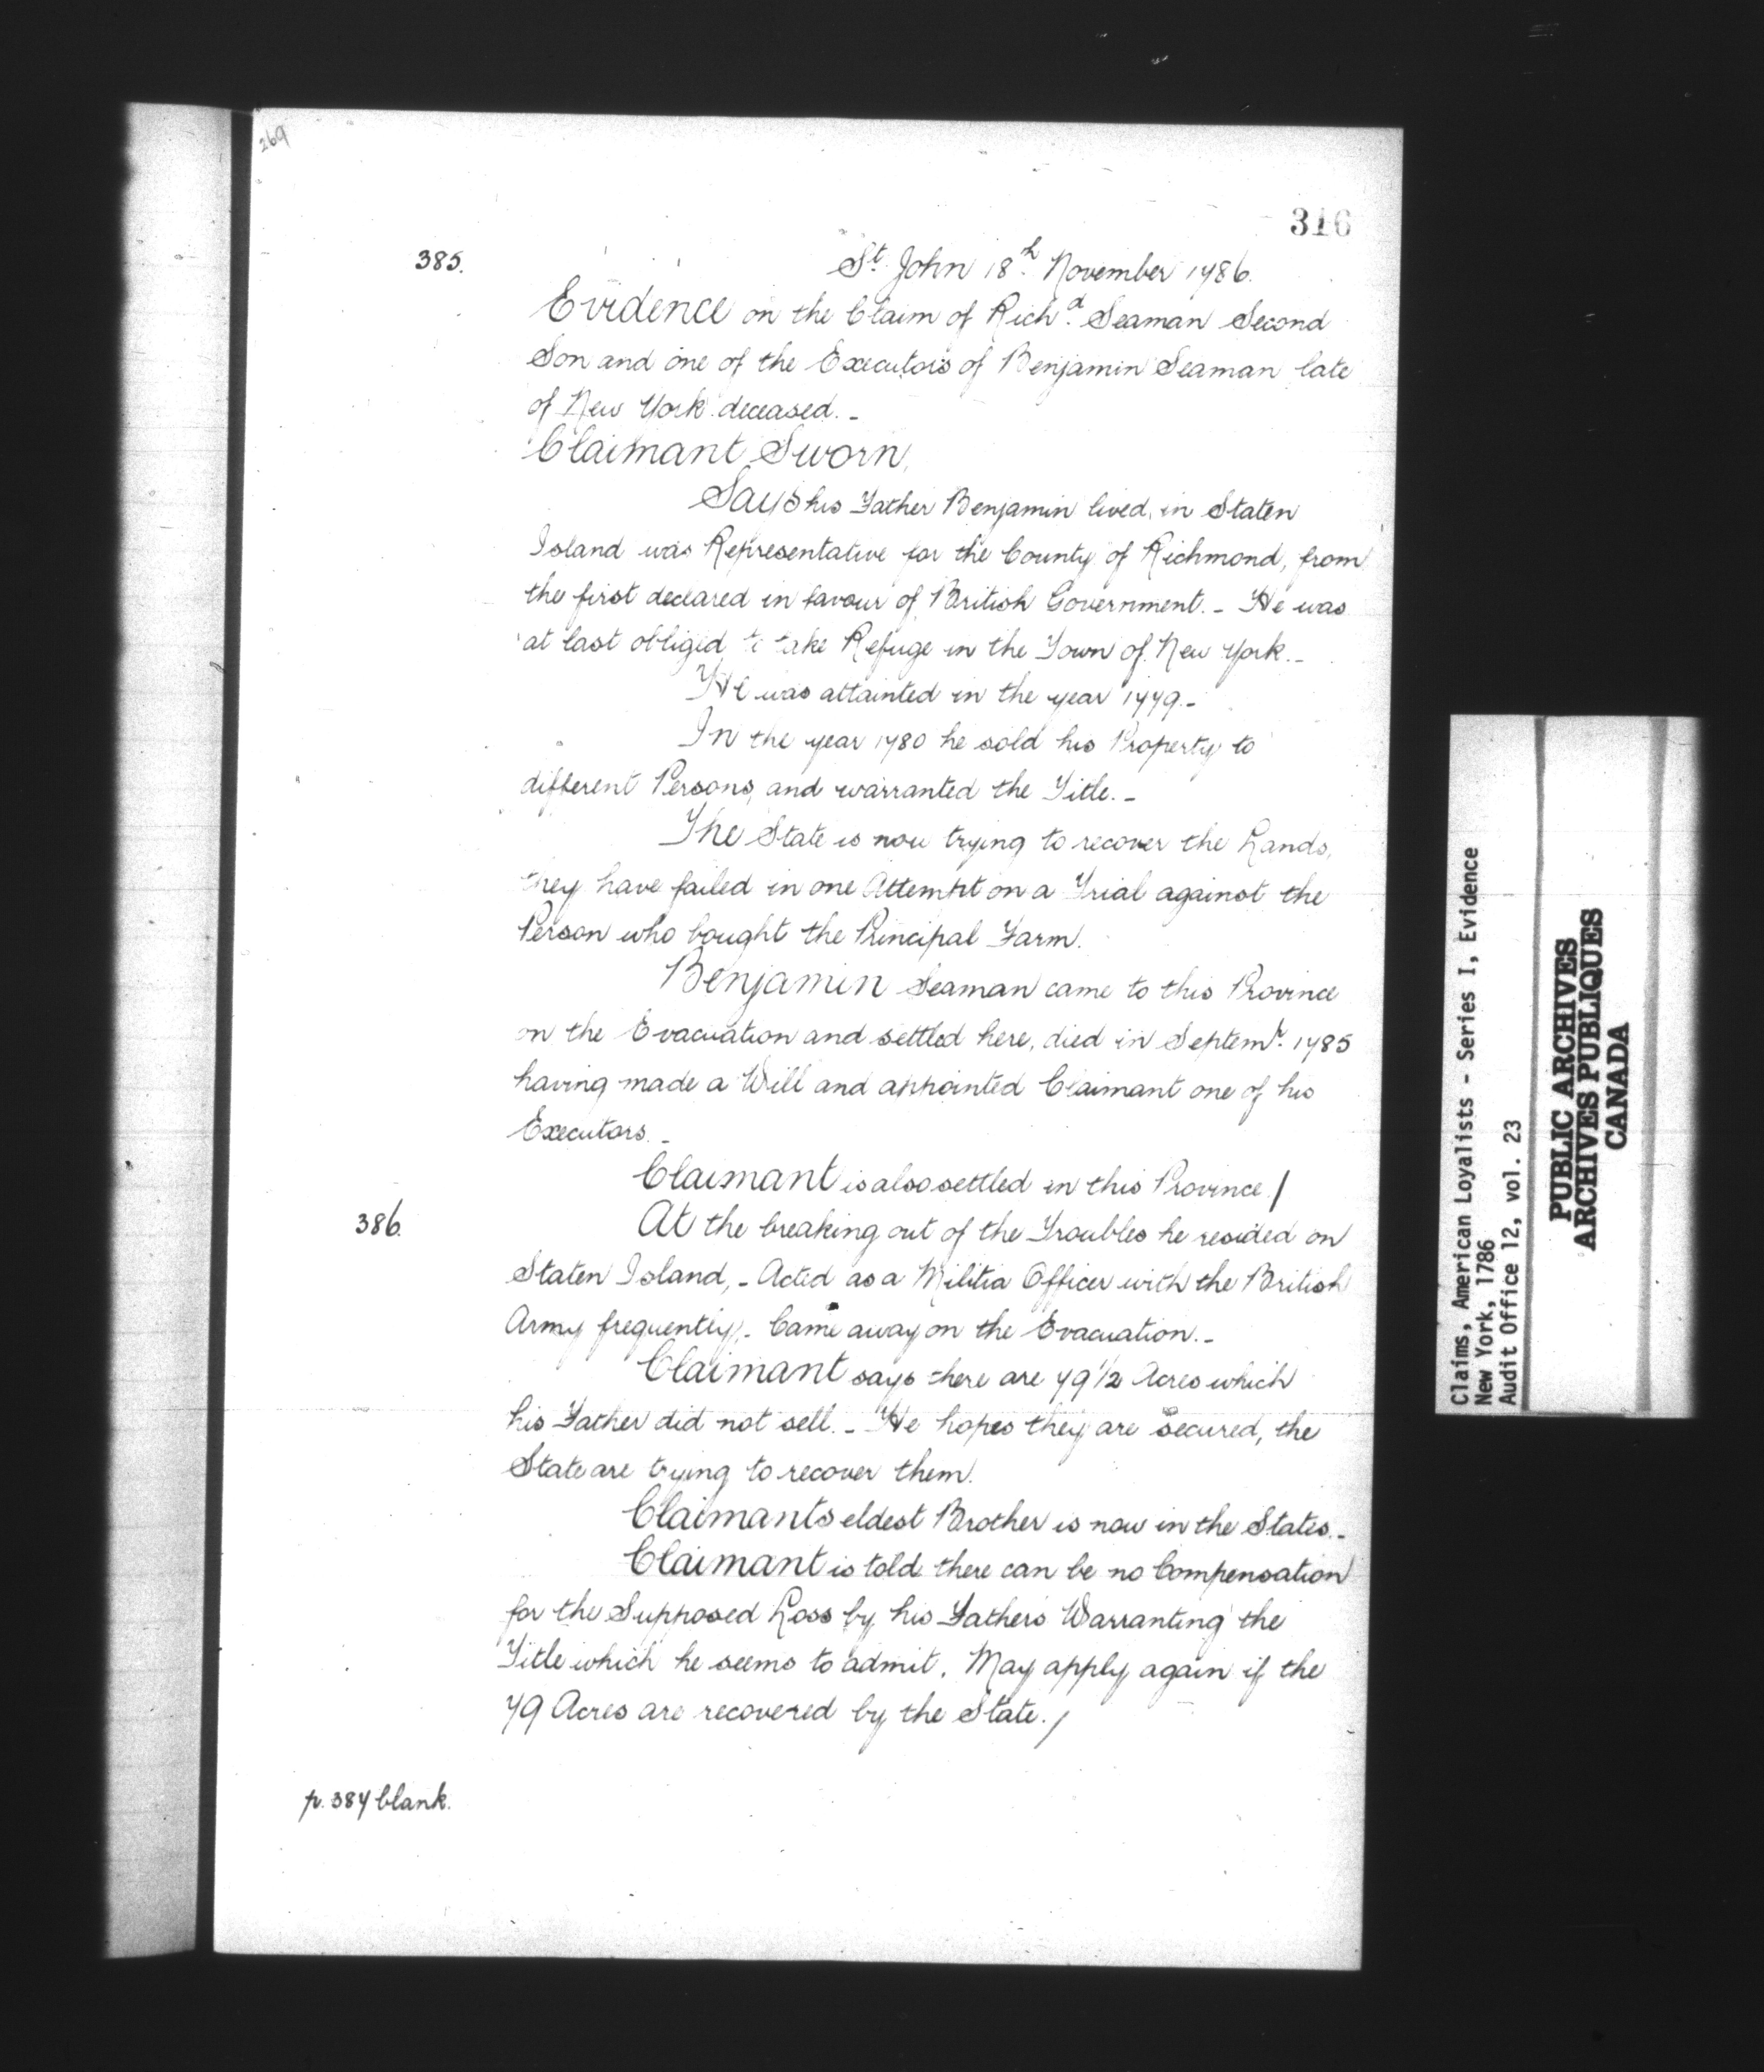 269
316
385.
St. John 18th. November 1786.
Evidence on the Claim of Richd. Seaman Second
Son and one of the Executors of Benjamin Seaman late
of New York deceased. -
Claimant Sworn,
Says his Father Benjamin lived, in Staten
Island was Representative for the County of Richmond, from
the first declared in favour of British Government. - He was
at last obliged to take Refuge in the Town of New York. -
He was attainted in the year 1779. -
In the year 1780 he sold his Property to
different Persons, and warranted the Title. -
The State is now trying to recover the Lands,
they have failed in one Attempt on a Trial against the
Person who bought the Principal Farm.
Benjamin Seaman came to this Province
on the Evacuation and settled here, died in Septemr. 1785
having made a Will and appointed Claimant one of his
Executors. -
Claimant is also settled in this Province /
386.
At the breaking out of the Troubles he resided on
Staten Island, - Acted as a Militia Officer with the British
Army frequently. - Came away on the Evacuation. -
Claimant says there are 79 1/2 Acres which
his Father did not sell. - He hopes they are secured, the
State are trying to recover them.
Claimants eldest Brother is now in the States. -
Claimant is told there can be no Compensation
for the Supposed Loss by his Fathers Warranting the
Title which he seems to admit. May apply again if the
79 Acres are recovered by the State. /
p. 387 blank.
Claims, American Loyalists - Series I, Evidence
New York, 1786
Audit Office 12, vol. 23
PUBLIC ARCHIVES
ARCHIVES PUBLIQUES
CANADA